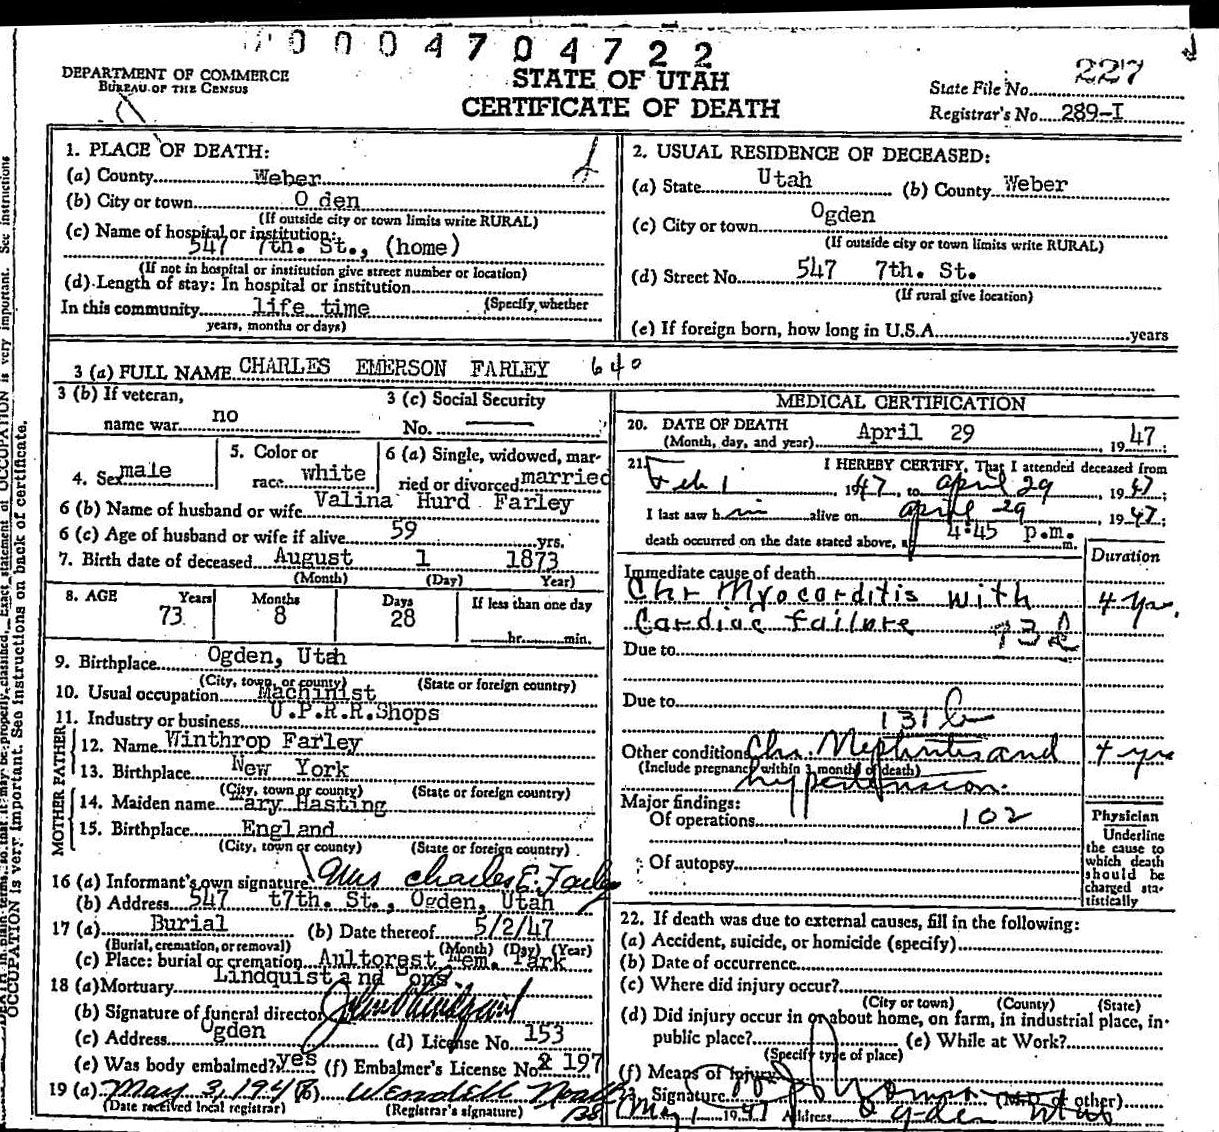 0004704722
DEPARTMENT OF COMMERCE
BUREAU OF THE CENSUS
STATE OF UTAH
CERTIFICATE OF DEATH
State File No. 227
Registrar's No. 289-I
1. PLACE OF DEATH:
(a) County Weber
(b) City or town O den
(If outside city or town limits write RURAL)
(c) Name of hospital or institution:
547 7th. St., (home)
(If not in hospital or institution give street number or location)
(d) Length of stay: In hospital or institution
(Specify whether
In this community life time
years, months or days)
2. USUAL RESIDENCE OF DECEASED:
(a) State Utah (b) County Weber
(c) City or town Ogden
(If outside city or town limits write RURAL)
(d) Street No. 547 7th. St.
(If rural give location)
(e) If foreign born, how long in U.S.A. years
3 (a) FULL NAME CHARLES EMERSON FARLEY 640
3 (b) If veteran,
name war no
3 (c) Social Security
No.
4. Sex male
5. Color or
race white
6 (a) Single, widowed, mar-
ried or divorced married
6 (b) Name of husband or wife Valina Hurd Farley
6 (c) Age of husband or wife if alive 59 yrs.
7. Birth date of deceased August 1 1873
(Month) (Day) Year)
8. AGE Years Months Days If less than one day
73 8 28 hr. min.
9. Birthplace Ogden, Utah
(City, town, or county) (State or foreign country)
10. Usual occupation Machinist
11. Industry or business U.P.R.R.Shops
FATHER
12. Name Winthrop Farley
13. Birthplace New York
(City, town or county) (State or foreign country)
MOTHER
14. Maiden name ary Hasting
15. Birthplace England
(City, town or county) (State or foreign country)
16 (a) Informant's own signature Mrs Charles E. Farley
(b) Address 547 t7th. St., Ogden, Utah
17 (a) Burial (b) Date thereof 5/2/47
(Burial, cremation, or removal) (Month) (Day) (Year)
(c) Place: burial or cremation Aultorest em. Park
18 (a) Mortuary Lindquist and Sons.
(b) Signature of funeral director
(c) Address Ogden (d) License No. 153
(e) Was body embalmed? yes (f) Embalmer's License No. 2 197
19 (a) May 3, 1947 (b) Wendell
(Date received local registrar) (Registrar's signature)
MEDICAL CERTIFICATION
20. DATE OF DEATH
(Month, day, and year) April 29 1947;
21. I HEREBY CERTIFY, That I attended deceased from
Feb 1, 1947, to April 29, 1947;
I last saw him alive on April 29, 1947;
death occurred on the date stated above, at 4:45 p.m. m.
Duration
Immediate cause of death
Chr Myocarditis with 4 yr.
Cardiac failure
Due to
Due to
131
Other conditions Chr. Nephritis and 4 yrs
(Include pregnancy within 3 months of death)
hypertension.
Major findings:
Of operations 102
Of autopsy
Physician
Underline
the cause to
which death
should be
charged sta-
tistically
22. If death was due to external causes, fill in the following:
(a) Accident, suicide, or homicide (specify)
(b) Date of occurrence
(c) Where did injury occur?
(City or town) (County) (State)
(d) Did injury occur in or about home, on farm, in industrial place, in
public place? (e) While at Work?
(Specify type of place)
(f) Means of Injury
Signature (M.D. or other)
May 1 1947 Address Ogden Utah
OCCUPATION is very important. See instructions on back of certificate.